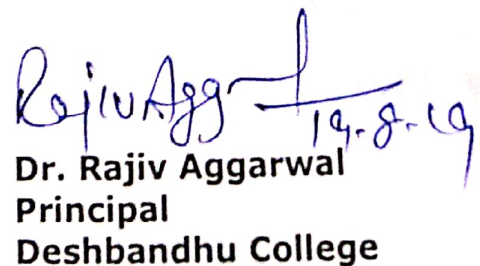 Rajiv Agg
19.8.19
Dr. Rajiv Aggarwal
Principal
Deshbandhu College